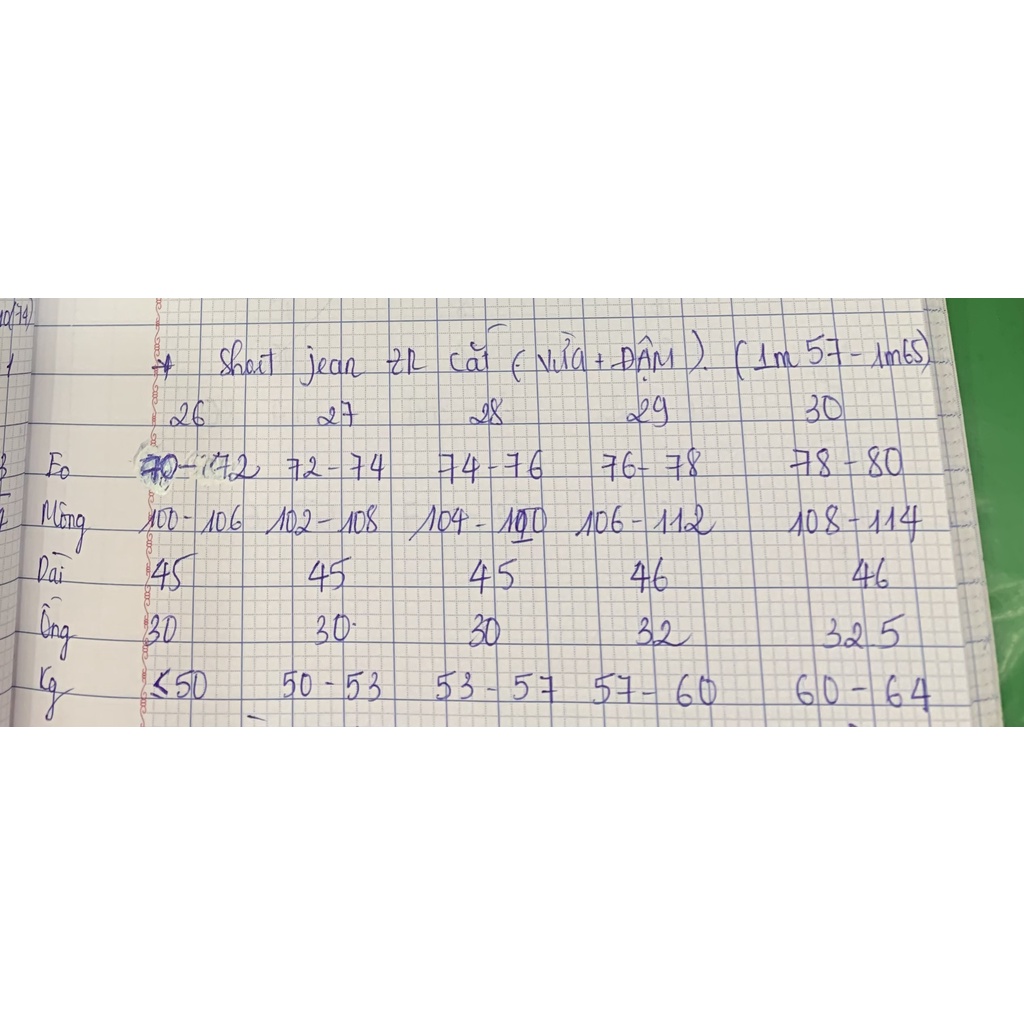 10(74)
1
* Short jean ZR cắt (VừA + ĐẬM). (1m 57 - 1m65)
26 27 28 29 30
Eo 70-72 72-74 74-76 76-78 78-80
Mông 100-106 102-108 104-110 106-112 108-114
Dài 45 45 45 46 46
Ống 30 30 30 32 32 5
Kg ≤50 50-53 53-57 57-60 60-64